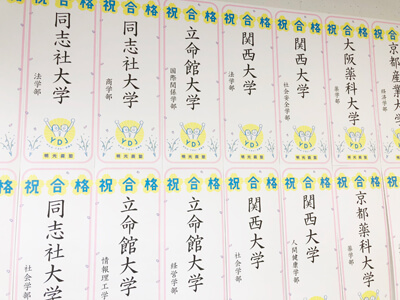 祝合格
同志社大学
法学部
YDJ
明光義塾
祝合格
同志社大学
商学部
YDJ
明光義塾
祝合格
立命館大学
国際関係学部
YDJ
明光義塾
祝合格
関西大学
法学部
YDJ
明光義塾
祝合格
関西大学
社会安全学部
YDJ
明光義塾
祝合格
大阪薬科大学
薬学部
YDJ
明光義塾
京都産業大
経済学部
格
祝合格
同志社大学
社会学部
祝合格
立命館大学
情報理工学
祝合格
立命館大学
経営学部
祝合格
関西大学
社会学部
祝合格
関西大学
人間健康学部
祝合格
京都薬科大学
薬学部